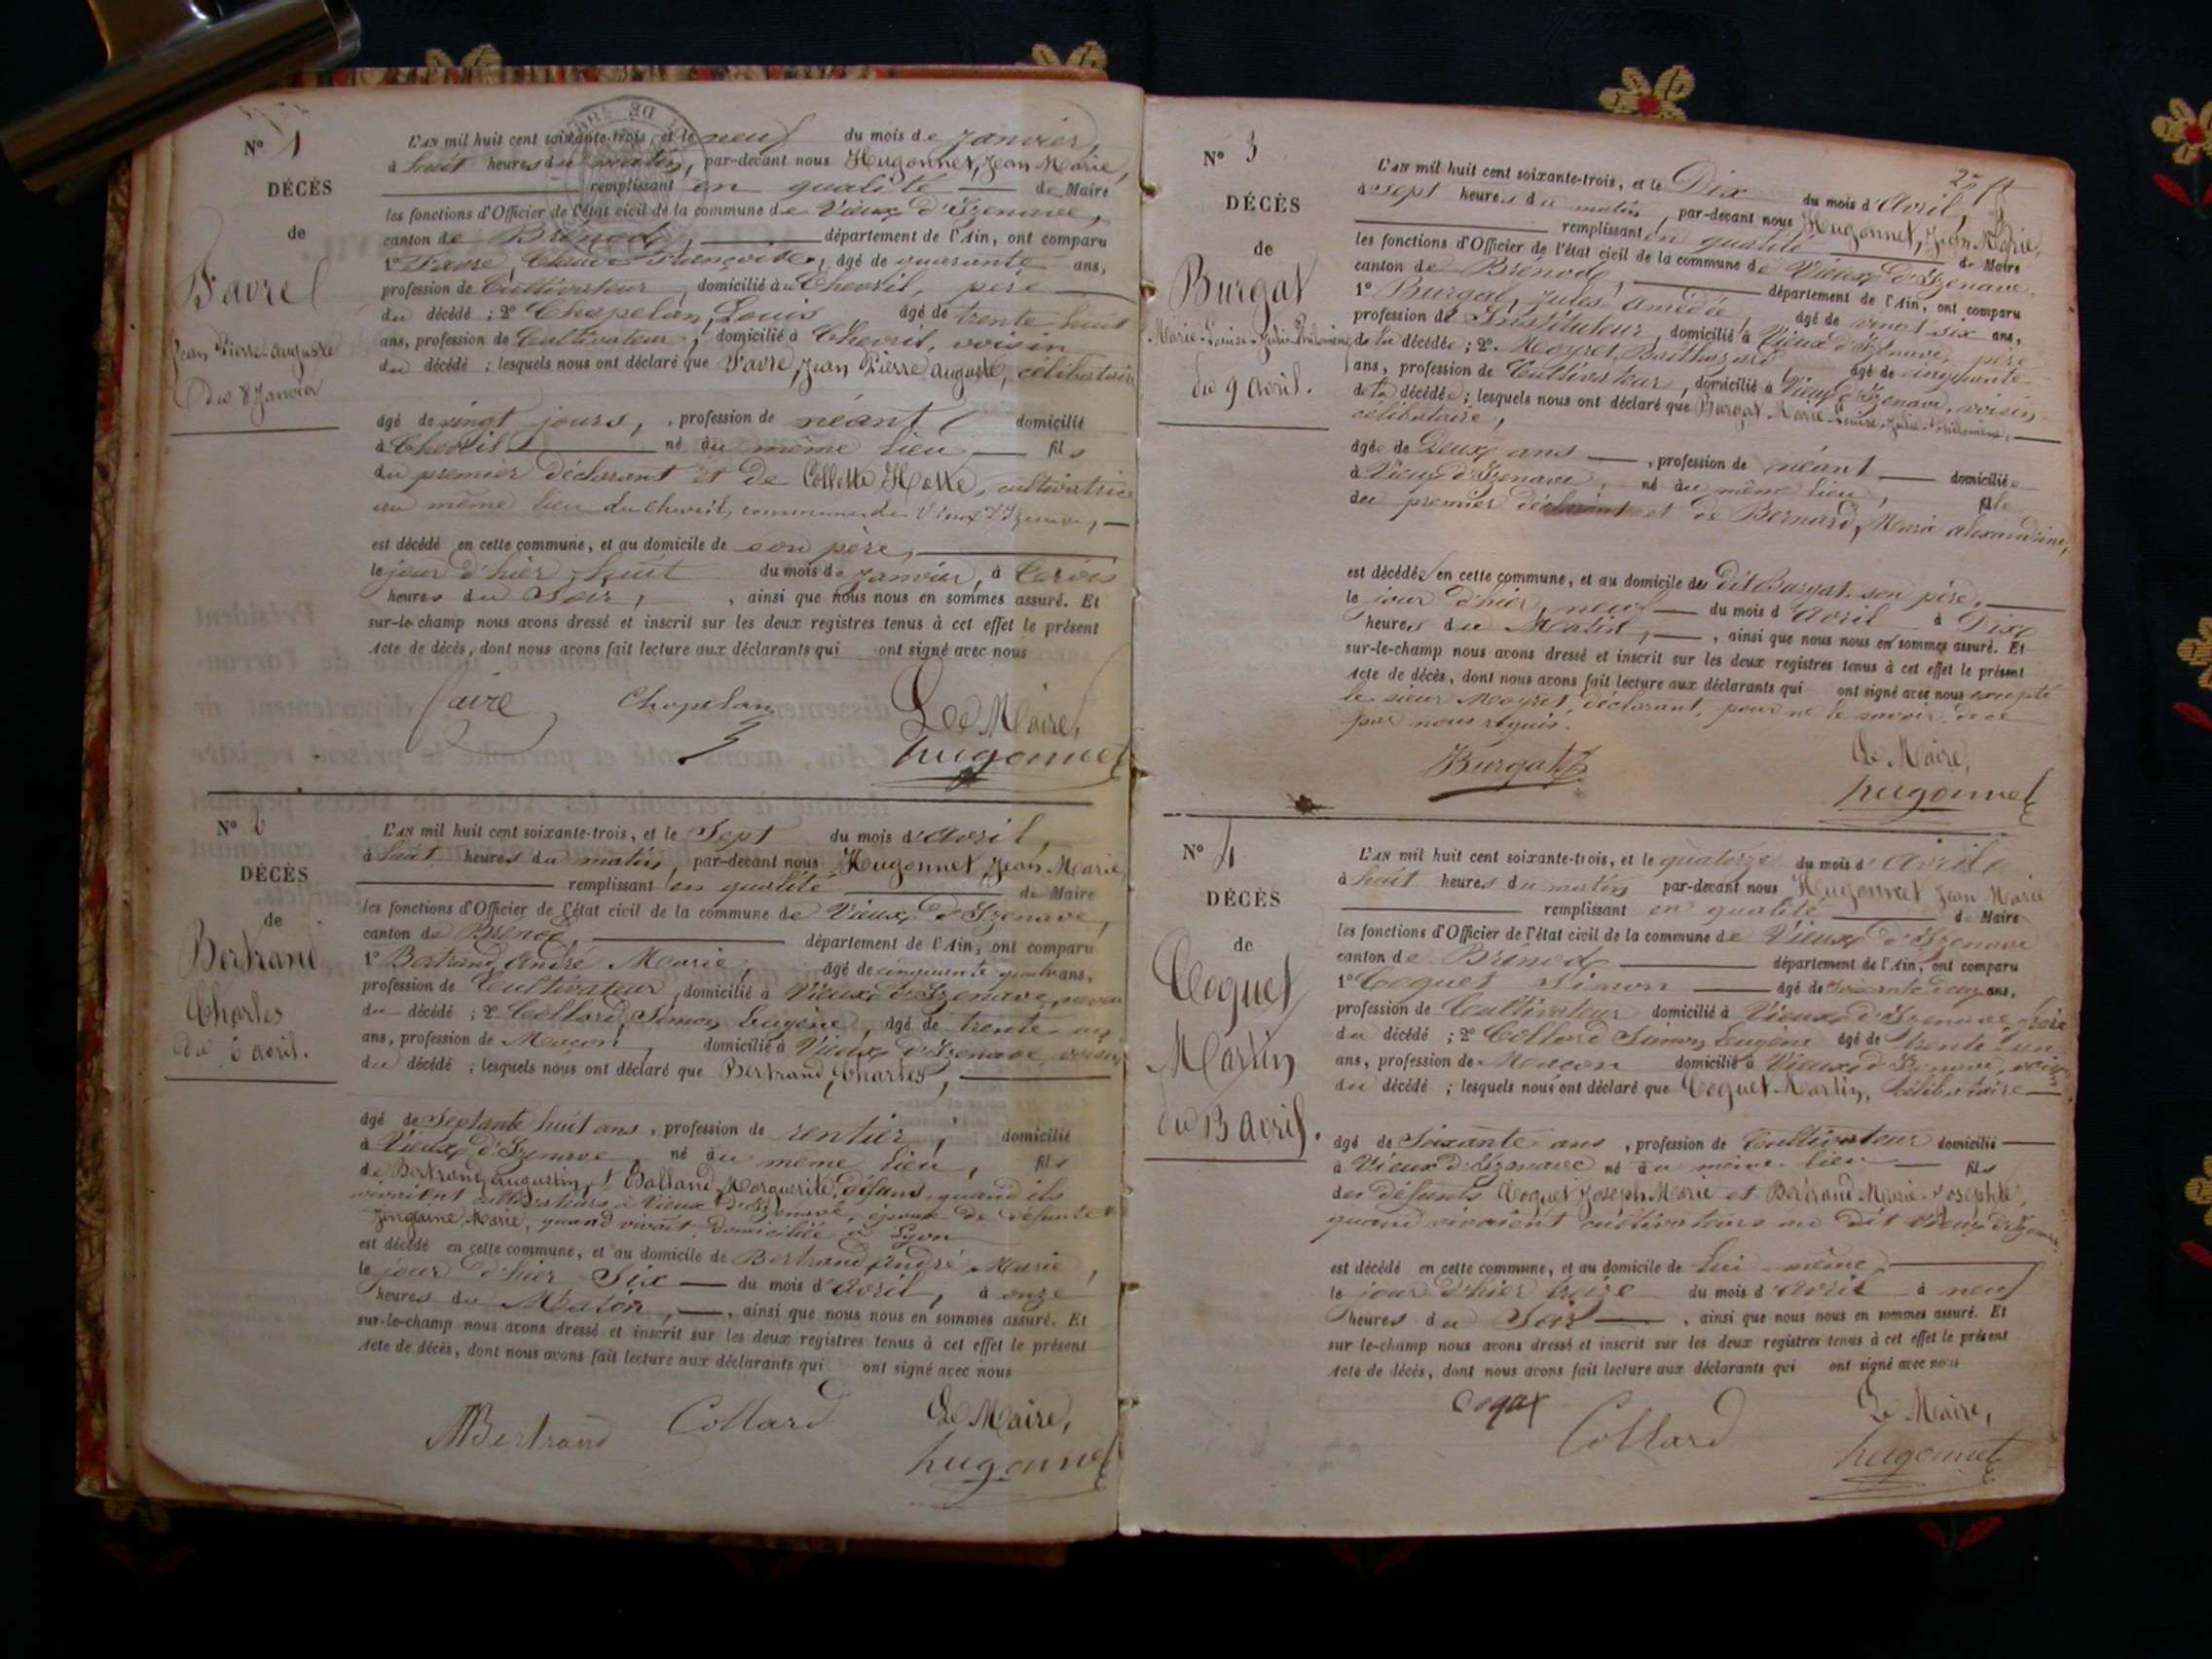 N° 1
DÉCÈS
de
Favre
Jean Pierre auguste
Du 8 Janvier
L'AN mil huit cent soixante-trois, et le neuf du mois de Janvier,
à huit heures du matin, par-devant nous Hugonnet, Jean Marie,
remplissant en qualité de Maire
les fonctions d'Officier de l'état civil de la commune de Vieux d'Izenave,
canton de Brénod, département de l'Ain, ont comparu
1° Favre, Claude François, âgé de quarante ans,
profession de Cultivateur, domicilié au Chevril, père
du décédé ; 2° Chapelan, Louis, âgé de trente huit
ans, profession de Cultivateur, domicilié à Chevril, voisin
du décédé ; lesquels nous ont déclaré que Favre, Jean Pierre auguste, célibataire
âgé de vingt jours, profession de néant domicilié
à Chevril né au même lieu, fils
du premier déclarant et de Collette, cultivatrice
au même lieu du Chevril, commune de Vieux d'Izenave,
est décédé en cette commune, et au domicile de son père,
le jour d'hier, huit du mois de Janvier, à trois
heures du Soir, , ainsi que nous nous en sommes assuré. Et
sur-le-champ nous avons dressé et inscrit sur les deux registres tenus à cet effet le présent
Acte de décès, dont nous avons fait lecture aux déclarants qui ont signé avec nous
favre Chapelan Le Maire,
hugonnet
N° 2
DÉCÈS
de
Bertrand
Charles
Du 6 avril.
L'AN mil huit cent soixante-trois, et le Sept du mois d'avril,
à huit heures du matin, par-devant nous Hugonnet, Jean Marie
remplissant en qualité de Maire
les fonctions d'Officier de l'état civil de la commune de Vieux d'Izenave,
canton de Brénod, département de l'Ain, ont comparu
1° Bertrand, André Marie, âgé de cinquante quatre ans,
profession de Cultivateur, domicilié à Vieux d'Izenave, neveu
du décédé ; 2° Collard, Simon Eugène, âgé de trente un
ans, profession de Maçon, domicilié à Vieux d'Izenave, voisin
du décédé ; lesquels nous ont déclaré que Bertrand, Charles,
âgé de Septante huit ans, profession de rentier, domicilié
à Vieux d'Izenave né au même lieu, fils
de Bertrand, augustin, et Balland, Marguerite, défunts, quand ils
vivaient cultivateurs à Vieux d'Izenave, époux de défunte
Marie, quand vivait domiciliée à Lyon
est décédé en cette commune, et au domicile de Bertrand, André Marie,
le jour d'hier Six du mois d'avril, à onze
heures du Matin, , ainsi que nous nous en sommes assuré. Et
sur-le-champ nous avons dressé et inscrit sur les deux registres tenus à cet effet le présent
Acte de décès, dont nous avons fait lecture aux déclarants qui ont signé avec nous
Bertrand Collard Le Maire,
hugonnet
N° 3
DÉCÈS
de
Burgat
Marie-Louise-Julie-Philomène
du 9 avril.
L'AN mil huit cent soixante-trois, et le Dix du mois d'avril,
à sept heures du matin, par-devant nous Hugonnet, Jean Marie,
remplissant en qualité de Maire
les fonctions d'Officier de l'état civil de la commune de Vieux d'Izenave,
canton de Brénod, département de l'Ain, ont comparu
1° Burgat, Jules amédée, âgé de vingt six ans,
profession de Instituteur, domicilié à Vieux d'Izenave, père
de la décédée ; 2° Meyret, Balthazard, âgé de cinquante
ans, profession de Cultivateur, domicilié à Vieux d'Izenave, voisin
de la décédée ; lesquels nous ont déclaré que Burgat Marie-Louise, Julie-Philomène,
célibataire,
âgée de Deux ans, profession de néant domiciliée
à Vieux d'Izenave, né au même lieu, fille
du premier déclarant et de Bernard, Marie alexandrine,
est décédée en cette commune, et au domicile du dit Burgat, son père,
le jour d'hier, neuf du mois d'avril à Dix
heures du Matin, , ainsi que nous nous en sommes assuré. Et
sur-le-champ nous avons dressé et inscrit sur les deux registres tenus à cet effet le présent
Acte de décès, dont nous avons fait lecture aux déclarants qui ont signé avec nous excepté
le sieur Meyret, déclarant, pour ne le savoir, de ce
par nous requis.
Burgat Le Maire,
hugonnet
N° 4
DÉCÈS
de
Coquet
Martin
du 13 avril.
L'AN mil huit cent soixante-trois, et le quatorze du mois d'avril
à huit heures du matin par-devant nous Hugonnet Jean Marie
remplissant en qualité de Maire
les fonctions d'Officier de l'état civil de la commune de Vieux d'Izenave
canton de Brénod département de l'Ain, ont comparu
1° Coquet Simon âgé de Soixante deux ans,
profession de Cultivateur domicilié à Vieux d'Izenave, frère
du décédé ; 2° Collard Simon Eugène âgé de trente un
ans, profession de Maçon domicilié à Vieux d'Izenave, voisin
du décédé ; lesquels nous ont déclaré que Coquet Martin, Célibataire
âgé de Soixante ans, profession de Cultivateur domicilié
à Vieux d'Izenave né au même lieu fils
des défunts Coquet Joseph-Marie et Bertrand Marie-Josephte,
quand vivaient cultivateurs au dit Vieux d'Izenave
est décédé en cette commune, et au domicile de Lui-même,
le jour d'hier treize du mois d'avril à neuf
heures du Soir , ainsi que nous nous en sommes assuré. Et
sur le-champ nous avons dressé et inscrit sur les deux registres tenus à cet effet le présent
Acte de décès, dont nous avons fait lecture aux déclarants qui ont signé avec nous
Collard Le Maire,
hugonnet